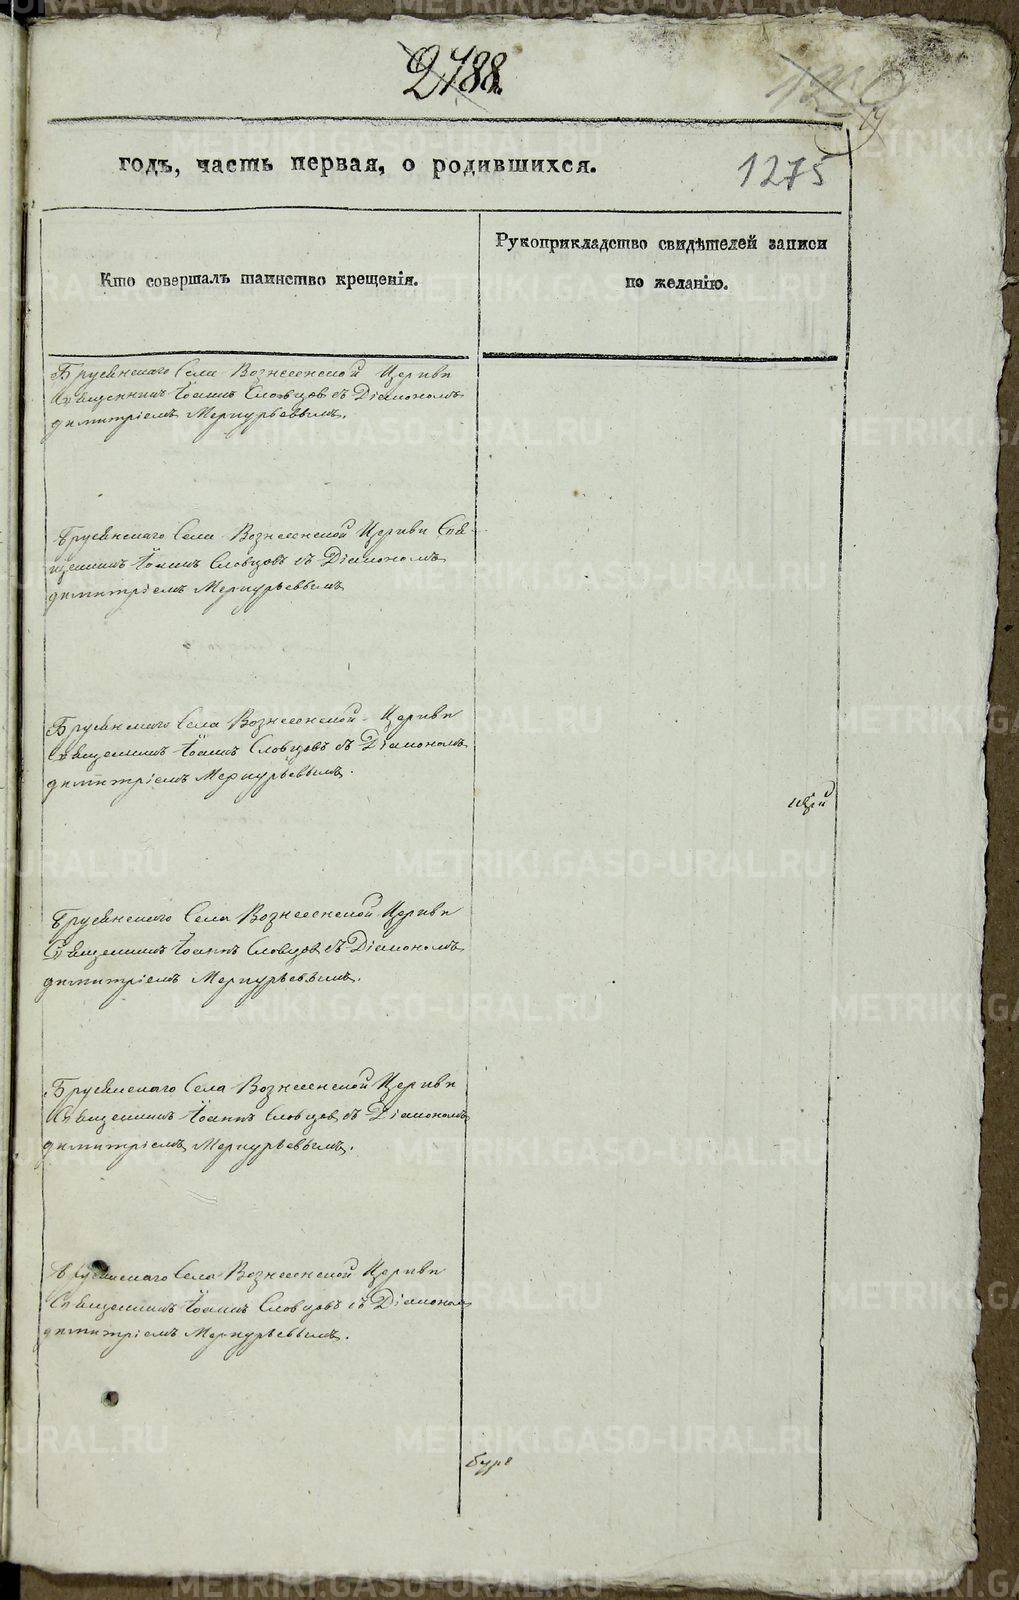 2788.
годъ, часть первая, о родившихся.
1275
Кто совершалъ таинство крещенія.
Рукоприкладство свидѣтелей записи
по желанію.
Брусянскаго Села Вознесенской Церкви
Священникъ Іоаннъ Словцов съ Діакономъ
Димитріемъ Меркурьевымъ.
Брусянскаго Села Вознесенской Церкви Свя-
щенникъ Іоаннъ Словцовъ съ Діакономъ
Димитріемъ Меркурьевымъ
Брусянскаго Села Вознесенской Церкви
Священникъ Іоаннъ Словцовъ съ Діакономъ
Димитріемъ Меркурьевымъ.
Брусянскаго Села Вознесенской Церкви
Священникъ Іоаннъ Словцов съ Діакономъ
Димитріемъ Меркурьевымъ.
Брусянскаго Села Вознесенской Церкви
Священникъ Іоаннъ Словцов съ Діакономъ
Димитріемъ Меркурьевымъ.
Брусянскаго Села Вознесенской Церкви
Священникъ Іоаннъ Словцовъ съ Діаконом
Димитріемъ Меркурьевымъ.
METRIKI.GASO-URAL.RU